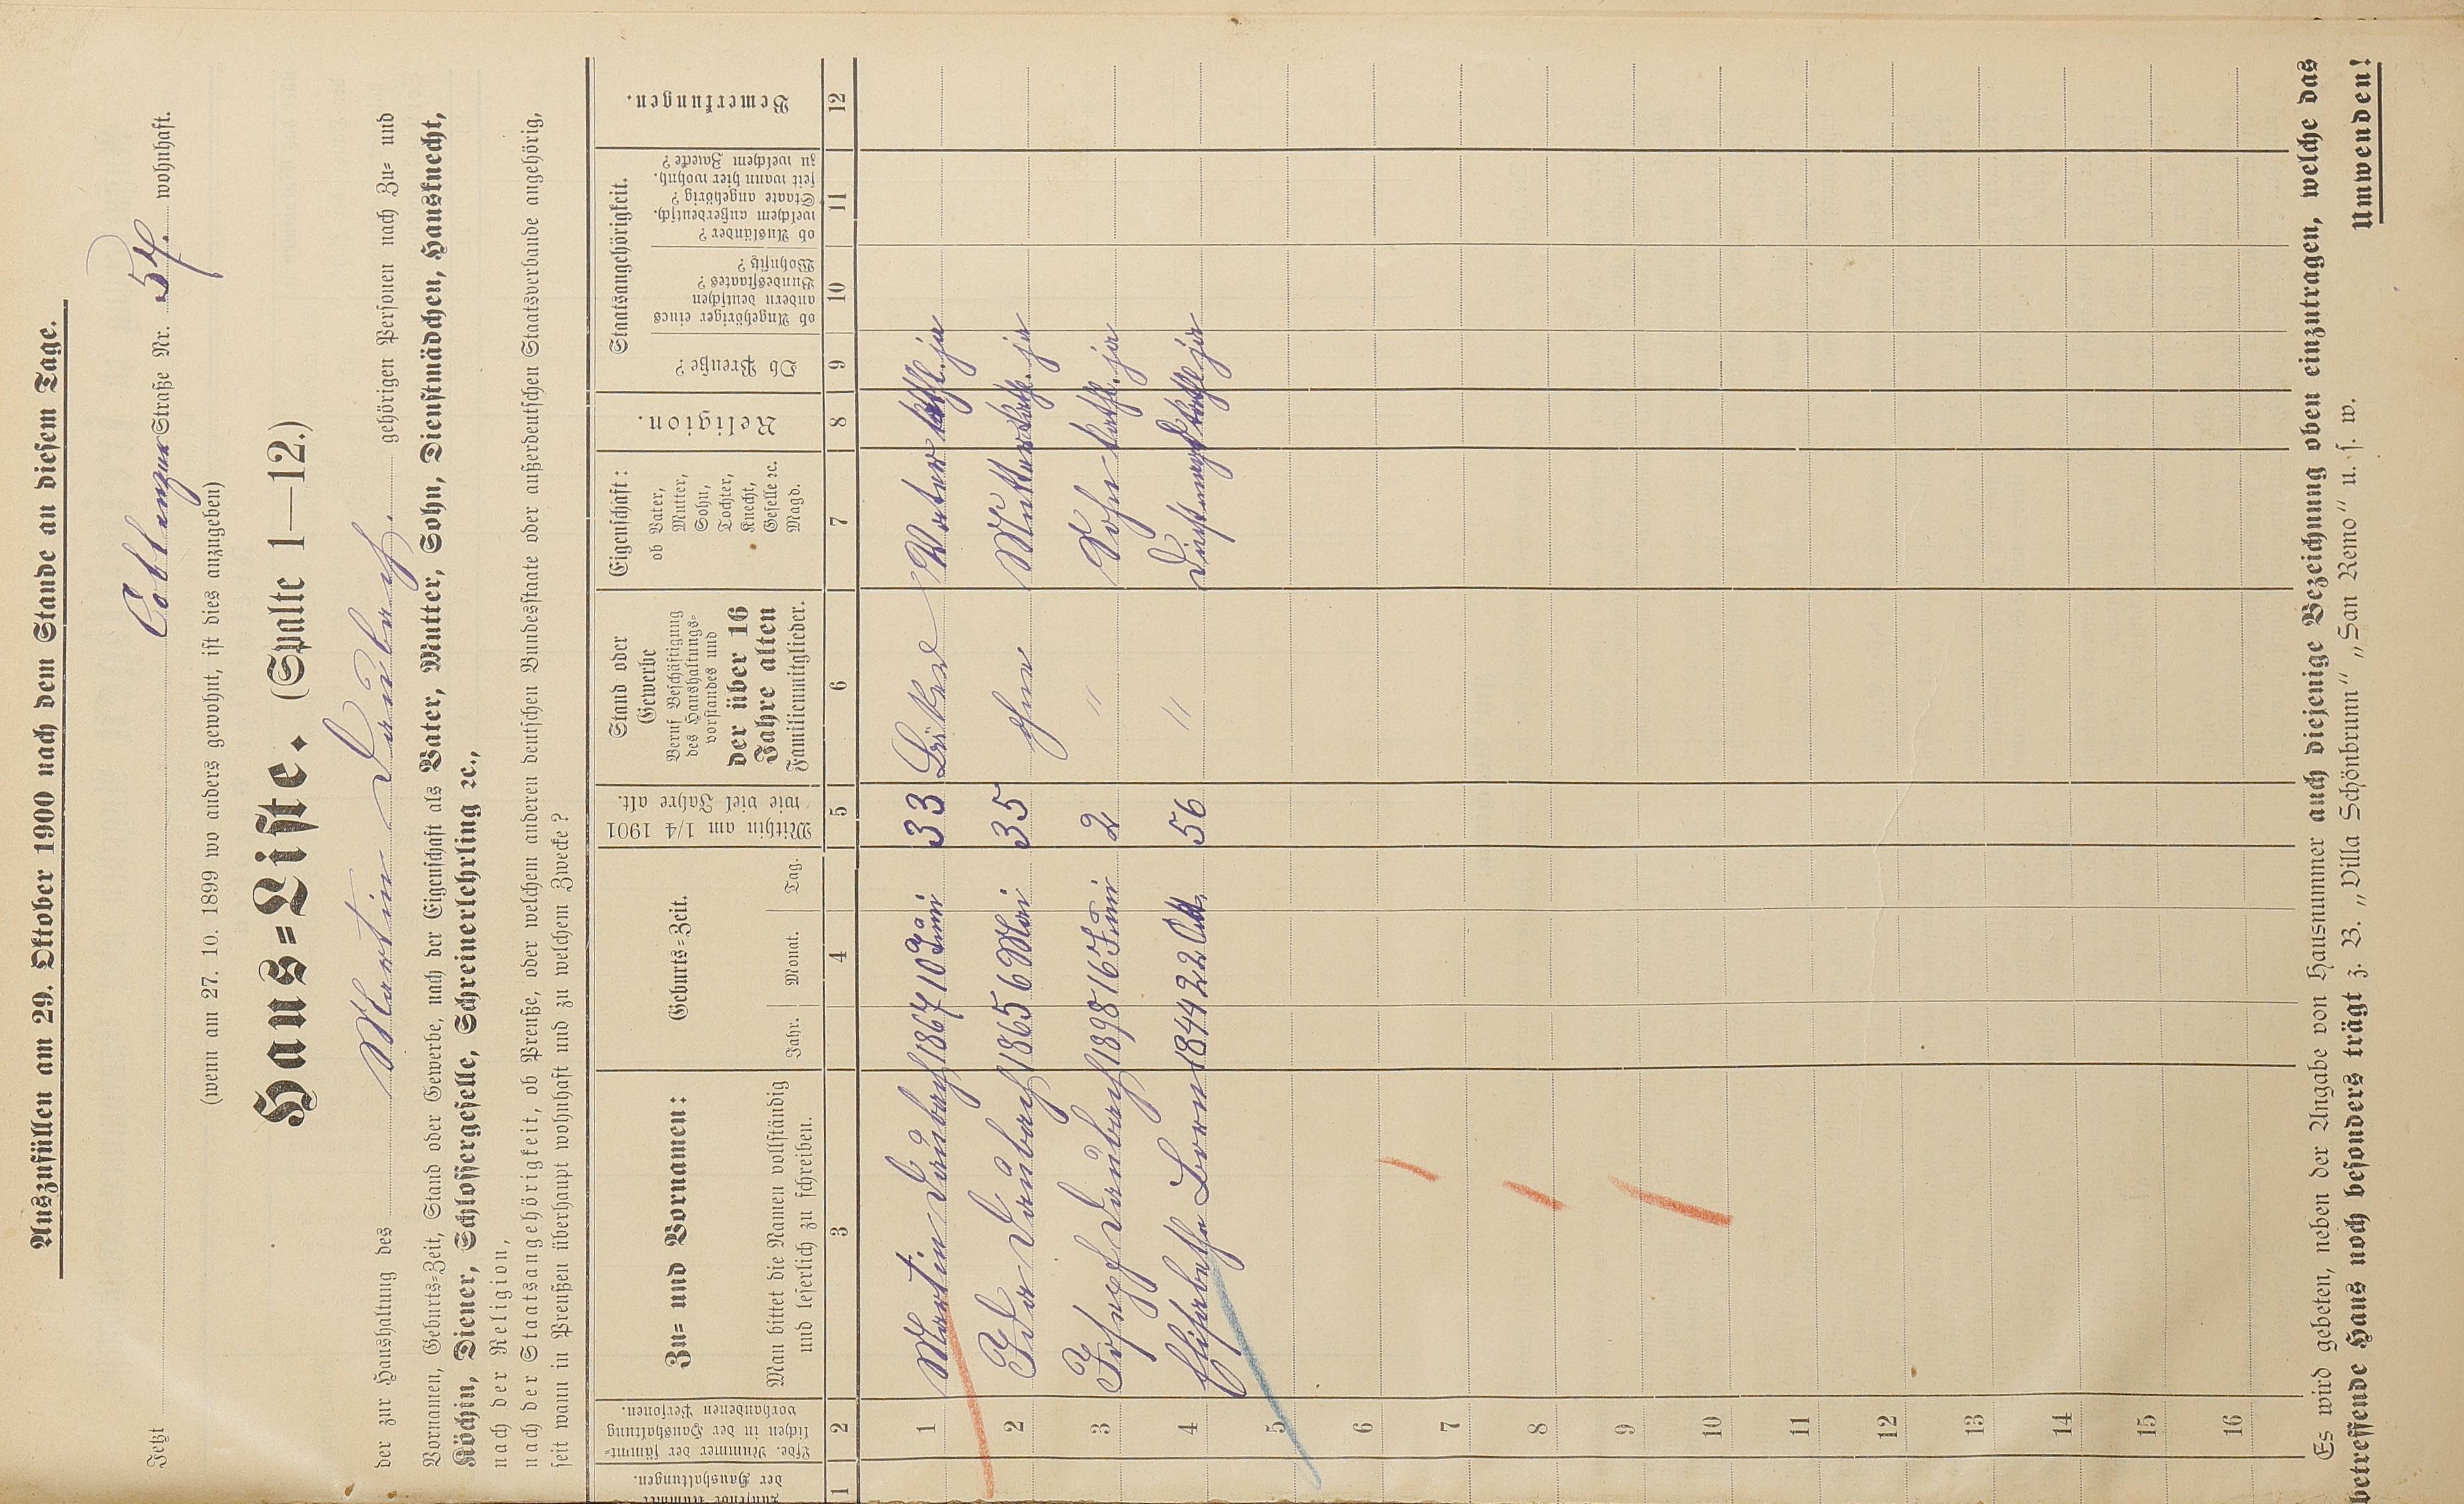 Auszufüllen am 29. Oktober 1900 nach dem Stande an diesem Tage.
Jetzt Coblenzer Straße Nr. 54. wohnhaft.
(wenn am 27. 10. 1899 wo anders gewohnt, ist dies anzugeben)
Haus=Liste. (Spalte 1—12.)
der zur Haushaltung des Martin Daubach. gehörigen Personen nach Zu= und
Vornamen, Geburts=Zeit, Stand oder Gewerbe, nach der Eigenschaft als Vater, Mutter, Sohn, Dienstmädchen, Hausknecht,
Köchin, Diener, Schlossergeselle, Schreinerlehrling ꝛc.,
nach der Religion,
nach der Staatsangehörigkeit, ob Preuße, oder welchem anderen deutschen Bundesstaate oder außerdeutschen Staatsverbande angehörig,
seit wann in Preußen überhaupt wohnhaft und zu welchem Zwecke?
Laufende Nummer
der Haushaltungen.
Lfde. Nummer der sämmt=
lichen in der Haushaltung
vorhandenen Personen.
Zu= und Vornamen:
Man bittet die Namen vollständig
und leserlich zu schreiben.
Geburts=Zeit.
Jahr. Monat. Tag.
Mithin am 1/4 1901
wie viel Jahre alt.
Stand oder
Gewerbe
Beruf Beschäftigung
des Haushaltungs=
vorstandes und
der über 16
Jahre alten
Familienmitglieder.
Eigenschaft:
ob Vater,
Mutter,
Sohn,
Tochter,
Knecht,
Geselle ꝛc.
Magd.
Religion.
Staatsangehörigkeit.
Ob Preuße?
ob Angehöriger eines
andern deutschen
Bundesstaates?
Wohnsitz?
ob Ausländer?
welchem außerdeutsch.
Staate angehörig?
seit wann hier wohnh.
zu welchem Zwecke?
Bemerkungen.
1 2 3 4 5 6 7 8 9 10 11 12
1 Martin Daubach 1867 10 Juni 33 Vater kath. ja
2 Ida Daubach 1865 6 Mai 35 ohne Mutter kath. ja
3 Joseph Daubach 1898 16 Juni 2 " Sohn kath. ja
4 Elisabetha Born 1844 22 Okt. 56 " Dienstmagd kath. ja
5
6
7
8
9
10
11
12
13
14
15
16
Es wird gebeten, neben der Angabe von Hausnummer auch diejenige Bezeichnung oben einzutragen, welche das
betreffende Haus noch besonders trägt z. B. „Villa Schönbrunn" „San Remo" u. s. w.
Umwenden!